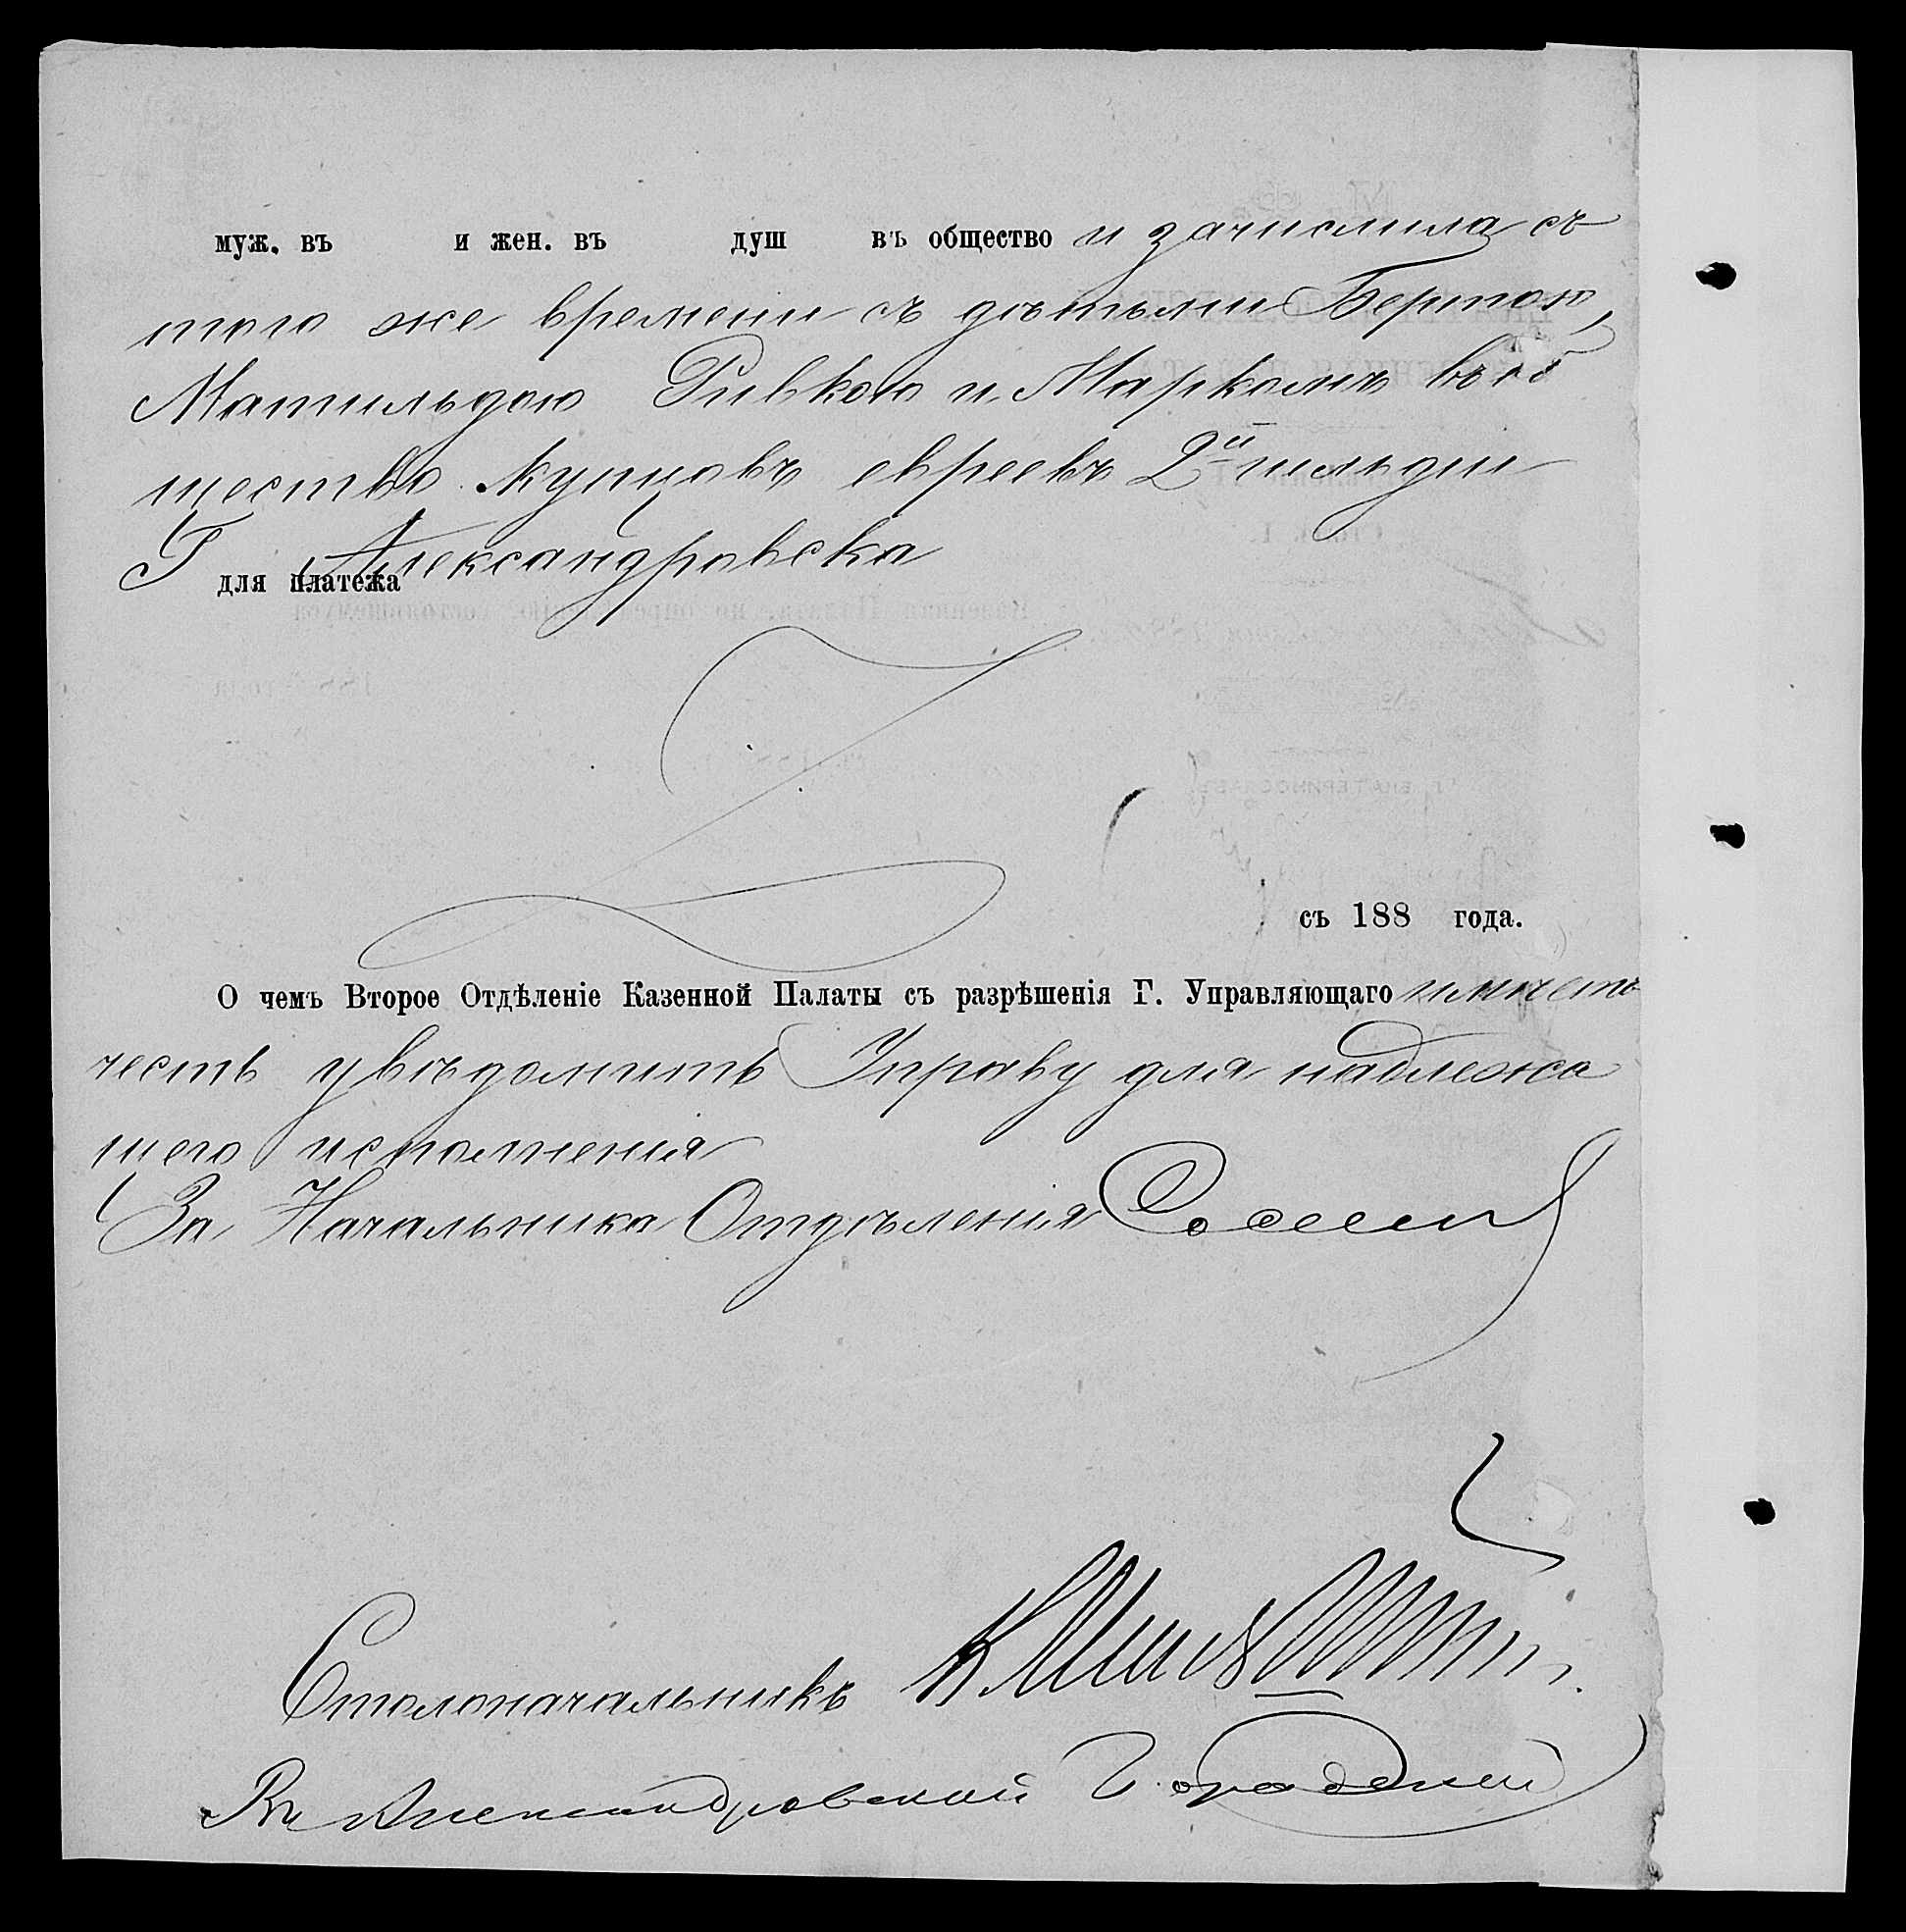 муж. въ и жен. въ душ въ общество и зачислила съ
того же времени съ дѣтьми Бертою,
Матильдою Ривкою и Маркомъ въ об
щество купцовъ евреевъ 2й гильдіи
Г Александровска
для платежа
съ 188 года.
О чемъ Второе Отдѣленіе Казенной Палаты съ разрѣшенія Г. Управляющаго имѣетъ
честь увѣдомить Управу для надлежа
щего исполненія
За Начальника Отдѣленія
Столоначальникъ
Въ Александровской Городской